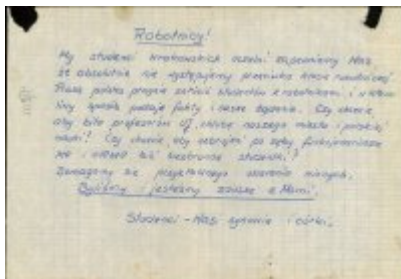 Robotnicy!
My studenci krakowskich uczelni zapewniamy Was,
że absolutnie nie występujemy przeciwko klasie robotniczej.
Prasa polska pragnie skłócić studentów z robotnikami, i w tym
celu podaje fakty i nasze żądania. Czy chcecie,
aby bito profesorów UJ, chlubę naszego miasta i polskiej
nauki? Czy chcecie, aby uzbrojeni po zęby funkcjonariusze
MO i ORMO bili bezbronne studentki?
Domagamy się przykładowego ukarania winnych.
Byliśmy i jesteśmy zawsze z Wami.
Studenci - Wasi synowie i córki.